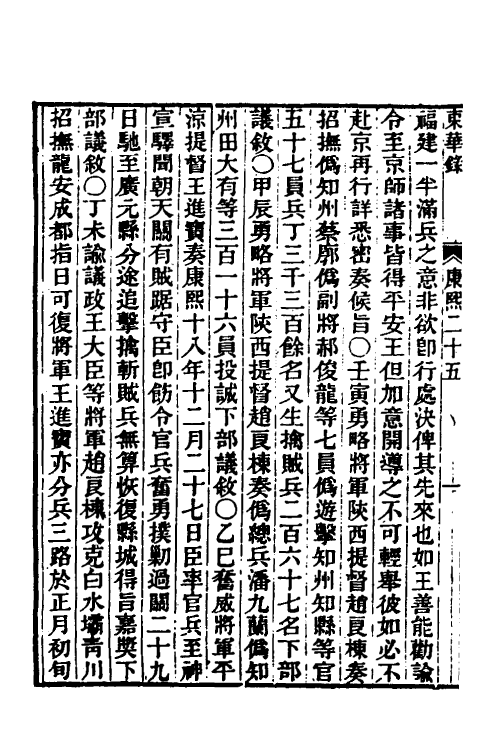 東華錄 康熙二十五 一
福建一半滿兵之意非欲卽行處決俾其先來也如王善能勸諭
令至京師諸事皆得平安王但加意開導之不可輕舉彼如必不
赴京再行詳悉密奏候旨〇壬寅勇略將軍陝西提督趙良棟奏
招撫僞知州蔡廓僞副將郝俊龍等七員僞遊擊知州知縣等官
五十七員兵丁三千三百餘名又生擒賊兵二百六十七名下部
議敘〇甲辰勇略將軍陝西提督趙良棟奏僞總兵潘九蘭僞知
州田大有等三百一十六員投誠下部議敘〇乙巳奮威將軍平
涼提督王進寶奏康熙十八年十二月二十七日臣率官兵至神
宣驛聞朝天關有賊踞守臣卽飭令官兵奮勇撲勦過關二十九
日馳至廣元縣分途追擊擒斬賊兵無算恢復縣城得旨嘉獎下
部議敘〇丁未諭議政王大臣等將軍趙良棟攻克白水壩靑川
招撫龍安成都指日可復將軍王進寶亦分兵三路於正月初旬